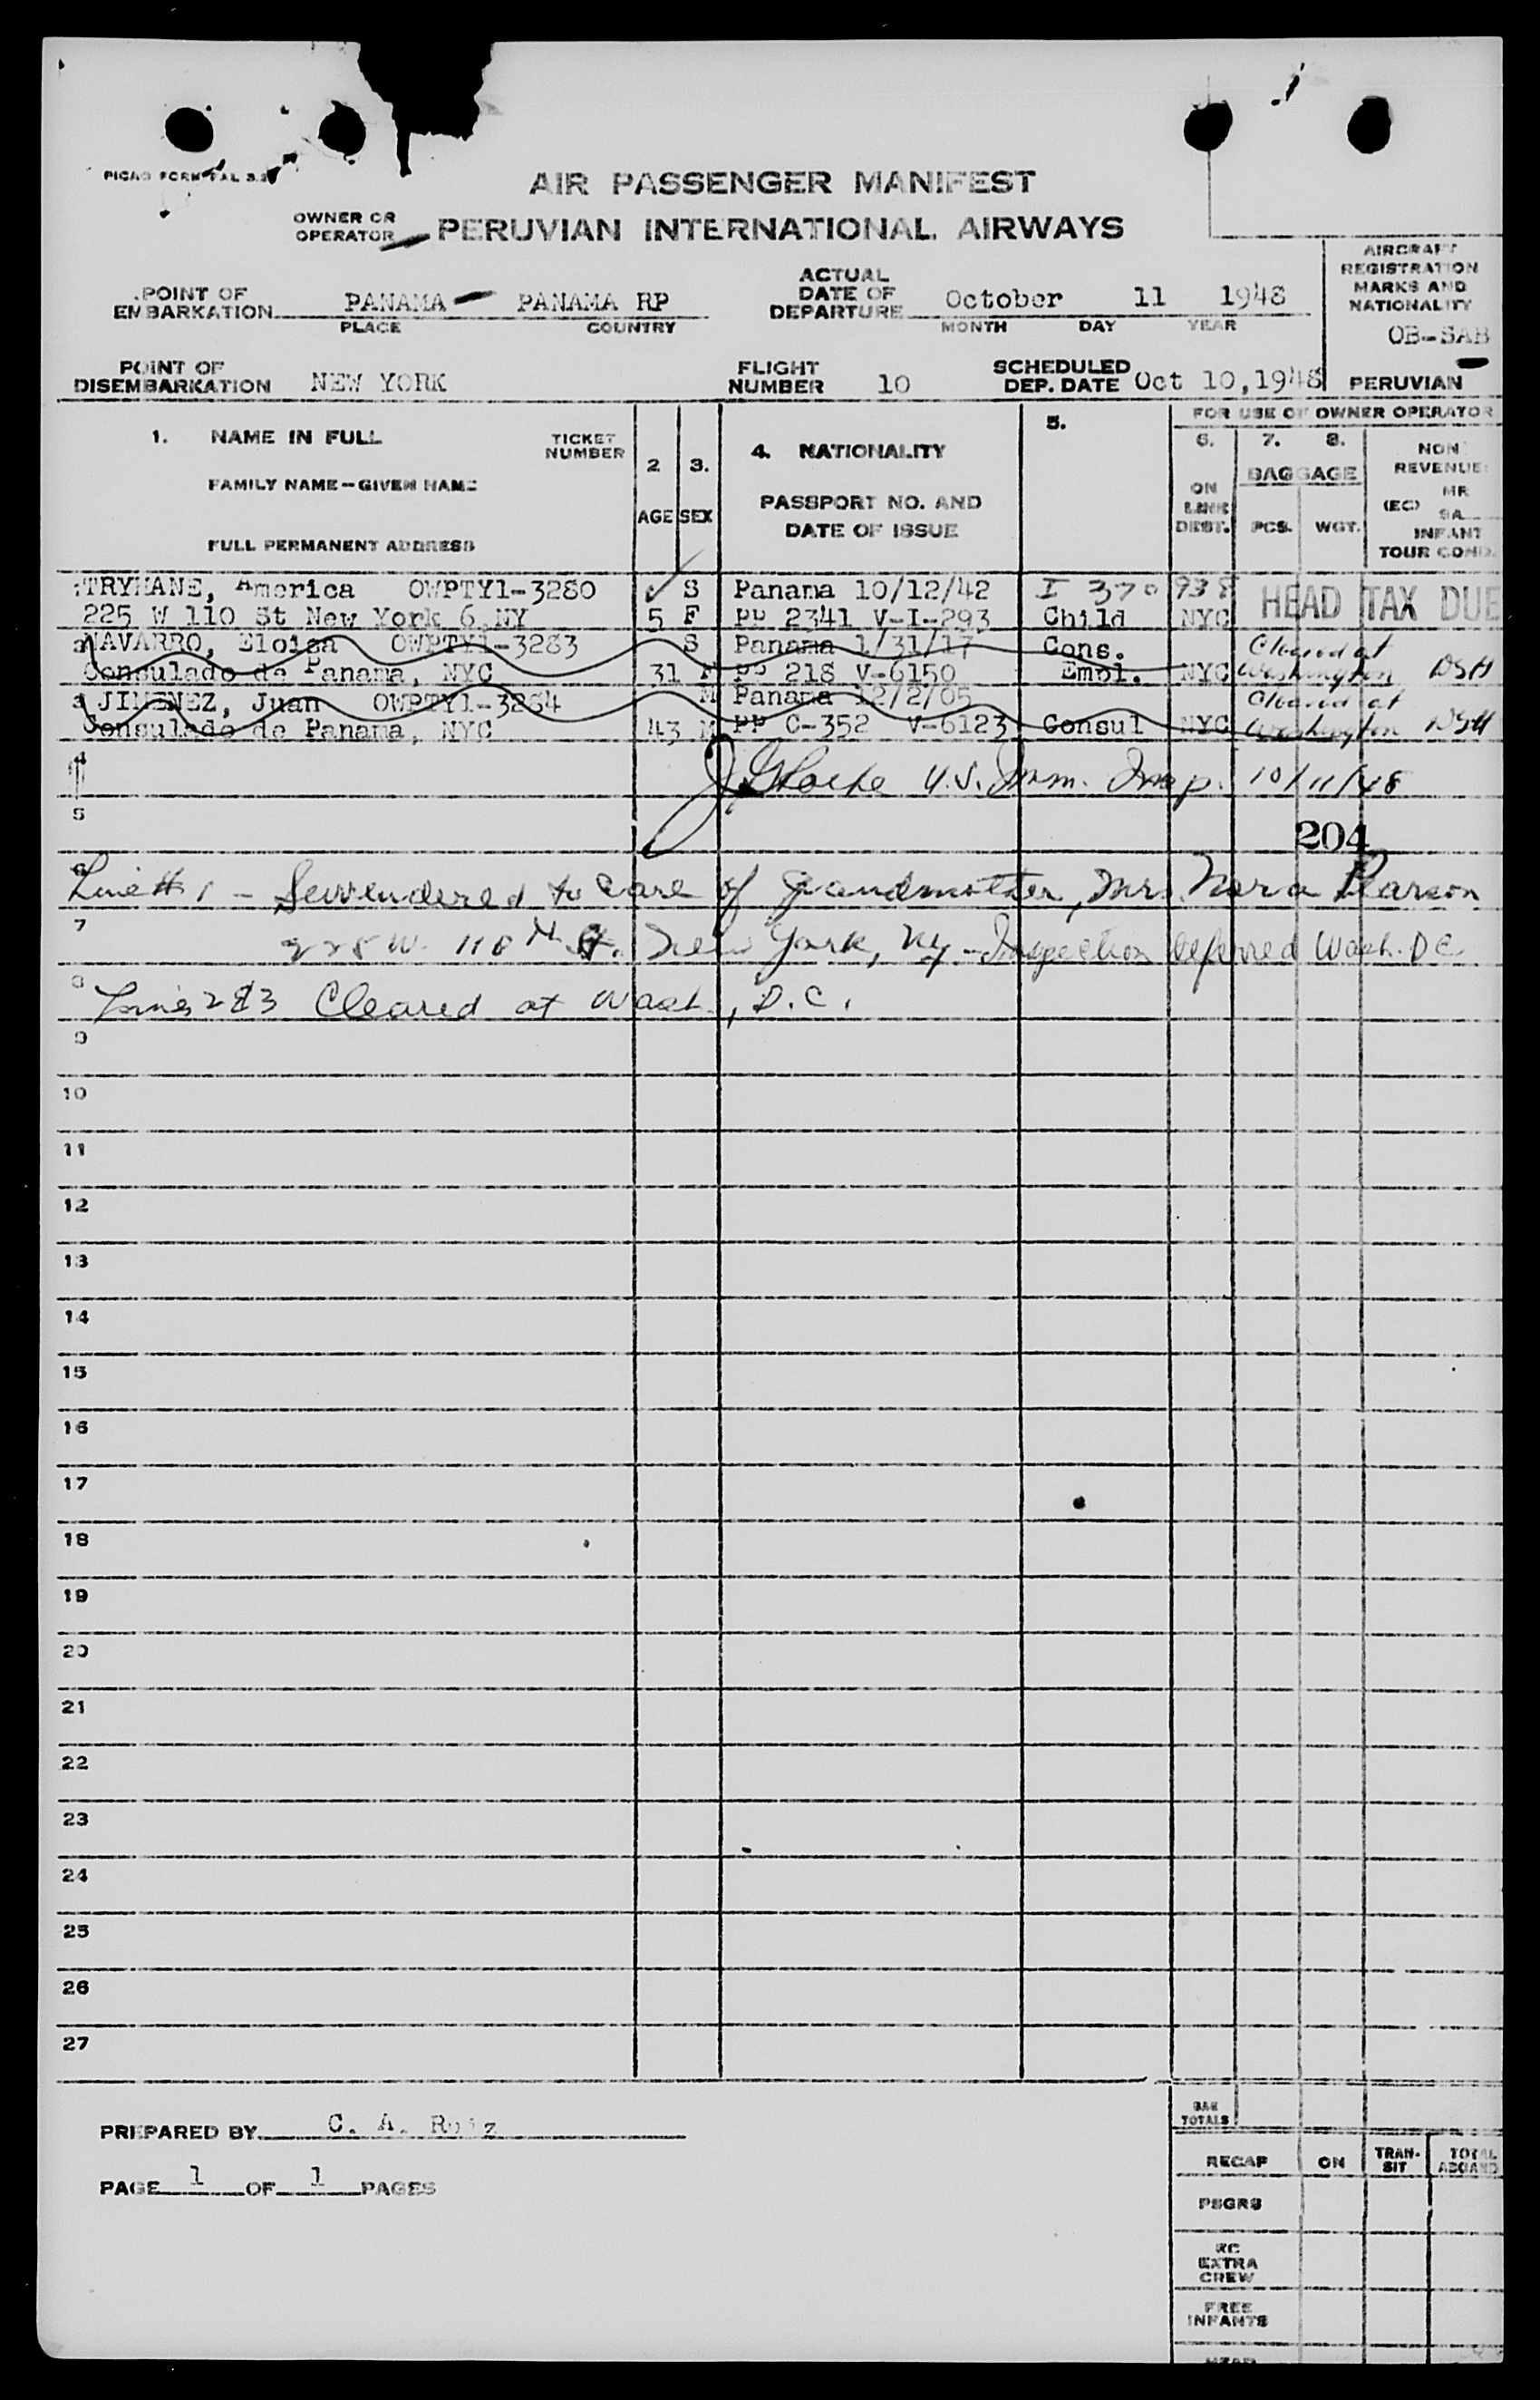 PICAO FORM FAL 3.2
AIR PASSENGER MANIFEST
OWNER OR OPERATOR PERUVIAN INTERNATIONAL AIRWAYS
AIRCRAFT REGISTRATION MARKS AND NATIONALITY
OB-SAB
PERUVIAN
POINT OF EMBARKATION PANAMA PANAMA RP
PLACE COUNTRY
ACTUAL DATE OF DEPARTURE October 11 1948
MONTH DAY YEAR
POINT OF DISEMBARKATION NEW YORK
FLIGHT NUMBER 10
SCHEDULED DEP. DATE Oct 10,1948
FOR USE OF OWNER OPERATOR
1. NAME IN FULL TICKET NUMBER
FAMILY NAME-GIVEN NAME
FULL PERMANENT ADDRESS
2 AGE
3. SEX
4. NATIONALITY
PASSPORT NO. AND
DATE OF ISSUE
5.
6. ON LINE DEST.
7. 8.
BAGGAGE
PCS. WGT.
NON REVENUE
(EC) MR
SA
INFANT
TOUR COND.
TRYHANE, America OWPTY1-3280 S Panama 10/12/42 I 370938 HEAD TAX DUE
225 W 110 St New York 6,NY 5 F PP 2341 V-I-293 Child NYC
2 NAVARRO, Eloisa OWPTY1-3283 S Panama 1/31/17 Cons. Cleared at
Consulado de Panama, NYC 31 PP 218 V-6150 Empl. NYC Washington DSH
3 JIMENEZ, Juan OWPTY1-3284 M Panama 12/2/05 Cleared at
Consulado de Panama, NYC 43 M PP C-352 V-6123 Consul NYC Washington DSH
4 U.S. Imm. Insp. 10/11/48
5 204
6 Line # 1 - Surrendered to care of grandmother, Mrs. Nora Pearson
7 225 W. 110th St. New York, NY - Inspection deferred Wash. DC
8 Lines 2 & 3 Cleared at Wash., D.C.
9
10
11
12
13
14
15
16
17
18
19
20
21
22
23
24
25
26
27
PREPARED BY C. A. Ruiz
PAGE 1 OF 1 PAGES
BAG TOTALS
RECAP ON TRAN-SIT TOTAL ABOARD
PSGRS
RC EXTRA CREW
FREE INFANTS